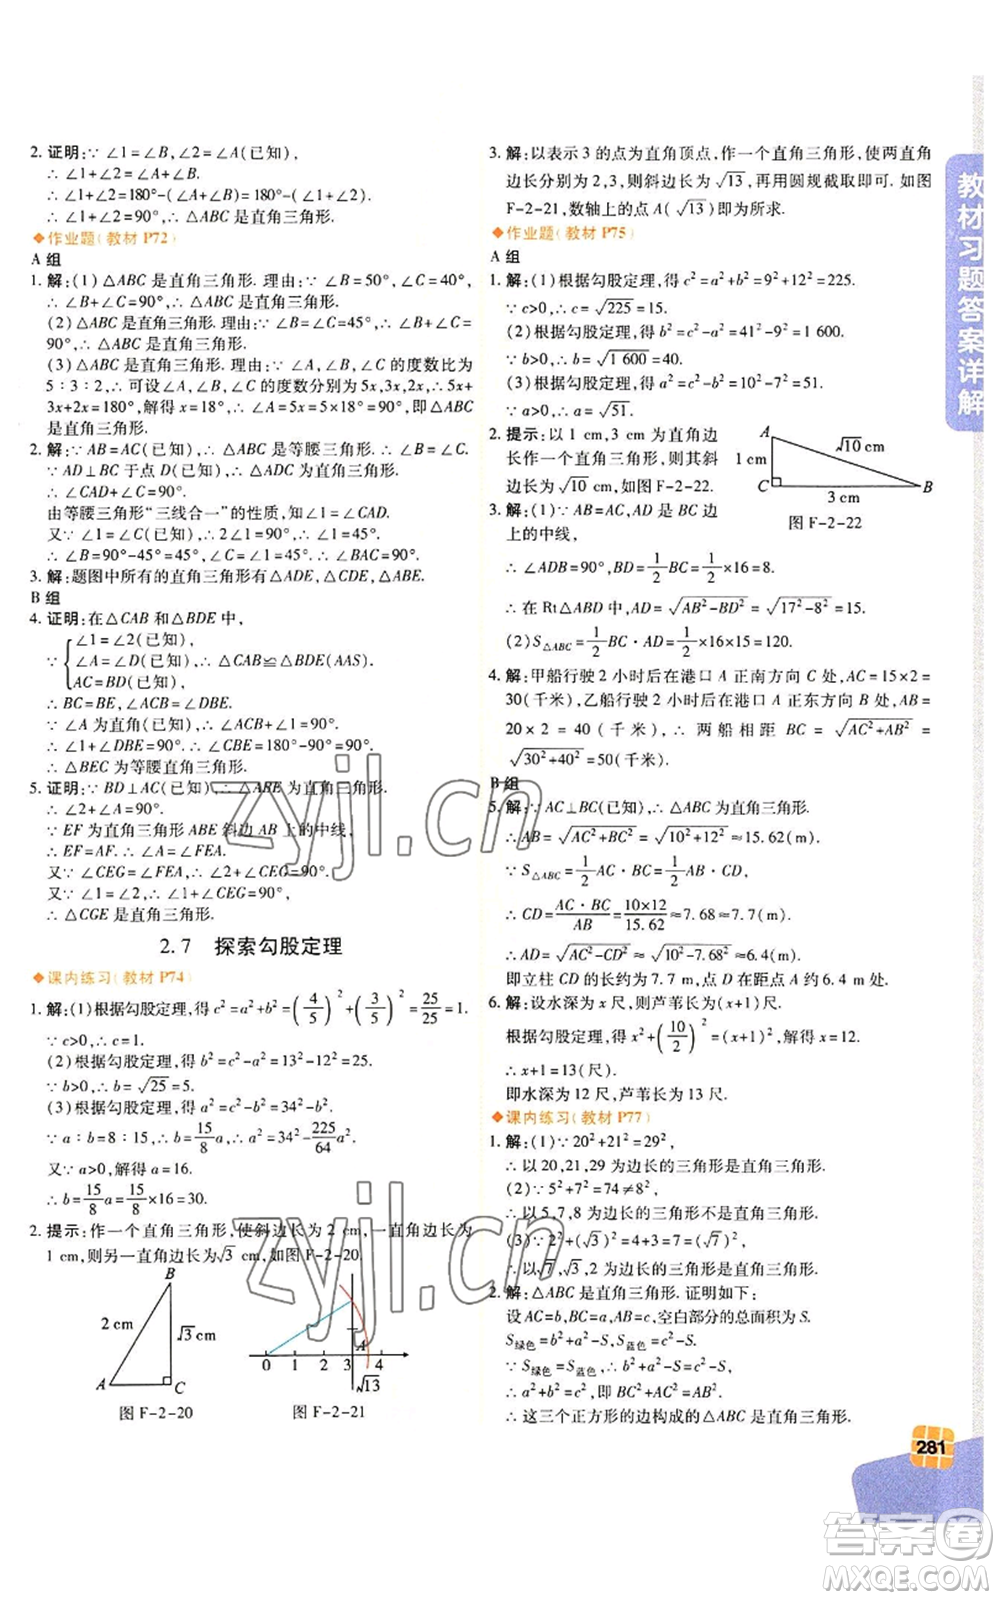 2. 证明:∵ ∠1=∠B,∠2=∠A(已知),
∴ ∠1+∠2=∠B+∠A.
∵ ∠1+∠2=180°-(∠B+∠A)=180°-(∠1+∠2),
∴ ∠1+∠2=90°,∴ △ABC 是直角三角形.
◆作业题(教材 P72)
A 组
1. 解:(1) △ABC 是直角三角形. 理由:∵ ∠B=50°,∠C=40°,∴ ∠B+∠C=90°,∴ △ABC 是直角三角形.
(2) △ABC 是直角三角形. 理由:∵ ∠B=∠C=45°,∴ ∠B+∠C=
90°,∴ △ABC 是直角三角形.
(3) △ABC 是直角三角形. 理由:∵ ∠A,∠B,∠C 的度数比为
5∶3∶2,∴ 可设∠A,∠B,∠C 的度数分别为 5x,3x,2x,∴ 5x+
3x+2x=180°,解得 x=18°,∴ ∠A=5x=5×18°=90°,即△ABC
是直角三角形.
2. 解:∵ AB=AC(已知),∴ △ABC 是等腰三角形,∴ ∠B=∠C.
∵ AD⊥BC 于点 D(已知),∴ △ADC 为直角三角形,
∴ ∠CAD+∠C=90°.
由等腰三角形“三线合一”的性质,知∠1=∠CAD.
又∵ ∠1=∠C(已知),∴ 2∠1=90°,∴ ∠1=45°,
∴ ∠B=90°-45°=45°,∴ ∠B=45°,∠C=45°.
3. 解:题图中所有的直角三角形有△ADE,△CDE,△ABE.
B 组
4. 证明:在△CAB 和△BDE 中,
∵ {∠1=∠2(已知),
∠A=∠D(已知),∴ △CAB≌△BDE(AAS).
AC=BD(已知),
∴ BC=BE,∠ABC=∠DBE.
∵ ∠A 为直角(已知),∴ ∠ACB+∠ABC=90°,
∴ ∠1+∠DBE=90°,∴ ∠CBE=180°-90°=90°,
∴ △BEC 为等腰直角三角形.
5. 证明:∵ BD⊥AC(已知),∴ △ABE 为直角三角形,
∴ ∠2+∠A=90°.
∵ EF 为直角三角形 ABE 斜边 AB 上的中线,
∴ EF=AF.∴ ∠A=∠FEA.
又∵ ∠CEG=∠FEA,∴ ∠2+∠CEG=90°.
又∵ ∠1=∠2(已知),∴ ∠1+∠CEG=90°,
∴ △CGE 是直角三角形.
2.7 探索勾股定理
◆课内练习(教材 P74)
1. 解:(1)根据勾股定理,得 c²=a²+b²=(4/5)²+(3/5)²=25/25=1.
∵ c>0,∴ c=1.
(2)根据勾股定理,得 b²=c²-a²=13²-12²=25.
∵ b>0,∴ b=√25=5.
(3)根据勾股定理,得 a²=c²-b²=34²-b².
∵ a∶b=8∶15,∴ b=15/8a,∴ a²=34²-225/64a².
又∵ a>0,∴ a=16.
∴ b=15/8a=15/8×16=30.
2. 提示:作一个直角三角形,使斜边长为 2 cm,一直角边长为
1 cm,则另一直角边长为√3 cm,如图 F-2-20.
B
2 cm
√3 cm
A
C
图 F-2-20
A
0 1 2 3 4
√13
图 F-2-21
3. 解:以表示 3 的点为直角顶点,作一个直角三角形,使两直角
边长分别为 2,3,则斜边长为√13,再用圆规截取即可. 如图
F-2-21,数轴上的点 A(√13)即为所求.
◆作业题(教材 P75)
A 组
1. 解:(1)根据勾股定理,得 c²=a²+b²=9²+12²=225.
∵ c>0,∴ c=√225=15.
(2)根据勾股定理,得 b²=c²-a²=41²-9²=1 600.
∵ b>0,∴ b=√1 600=40.
(3)根据勾股定理,得 a²=c²-b²=10²-7²=51.
∵ a>0,∴ a=√51.
2. 提示:以 1 cm,3 cm 为直角边
长作一个直角三角形,则其斜
边长为√10 cm,如图 F-2-22.
A
√10 cm
1 cm
C
3 cm
B
图 F-2-22
3. 解:(1)∵ AB=AC,AD 是 BC 边
上的中线,
∴ ∠ADB=90°,BD=1/2BC=1/2×16=8.
∴ 在 Rt△ABD 中,AD=√AB²-BD²=√17²-8²=15.
(2)S△ABC=1/2BC·AD=1/2×16×15=120.
4. 解:甲船行驶 2 小时后在港口 A 正南方向 C 处,AC=15×2=
30(千米),乙船行驶 2 小时后在港口 A 正东方向 B 处,AB=
20×2=40(千米),∴ 两船相距 BC=√AC²+AB²=
√30²+40²=50(千米).
B 组
5. 解:∵ AC⊥BC(已知),∴ △ABC 是直角三角形.
∴ AB=√AC²+BC²=√10²+12²≈15.62(m).
∵ S△ABC=1/2AC·BC=1/2AB·CD,
∴ CD=AC·BC/AB=10×12/15.62≈7.68≈7.7(m).
∴ AD=√AC²-CD²=√10²-7.68²≈6.4(m).
即立柱 CD 的长约为 7.7 m,点 D 在距点 A 约 6.4 m 处.
6. 解:设水深为 x 尺,则芦苇长为(x+1)尺.
根据勾股定理,得 x²+(10/2)²=(x+1)²,解得 x=12.
∴ x+1=13(尺).
即水深为 12 尺,芦苇长为 13 尺.
◆课内练习(教材 P77)
1. 解:(1)∵ 20²+21²=29²,
∴ 以 20,21,29 为边长的三角形是直角三角形.
(2)∵ 5²+7²=74≠8²,
∴ 以 5,7,8 为边长的三角形不是直角三角形.
(3)∵ 2²+(√3)²=4+3=(√7)²,
∴ 以√7,√3,2 为边长的三角形是直角三角形.
2. 解:△ABC 是直角三角形. 证明如下:
设 AC=b,BC=a,AB=c,空白部分的总面积为 S.
S绿色=a²+b²+S,S蓝色=c²+S.
∵ S绿色=S蓝色,∴ a²+b²+S=c²+S,
∴ a²+b²=c²,即 BC²+AC²=AB²,
∴ 这三个正方形的边构成的△ABC 是直角三角形.
教材习题答案详解
281
zyjl.cn
zyjl.cn
答案卷
MXQE.COM